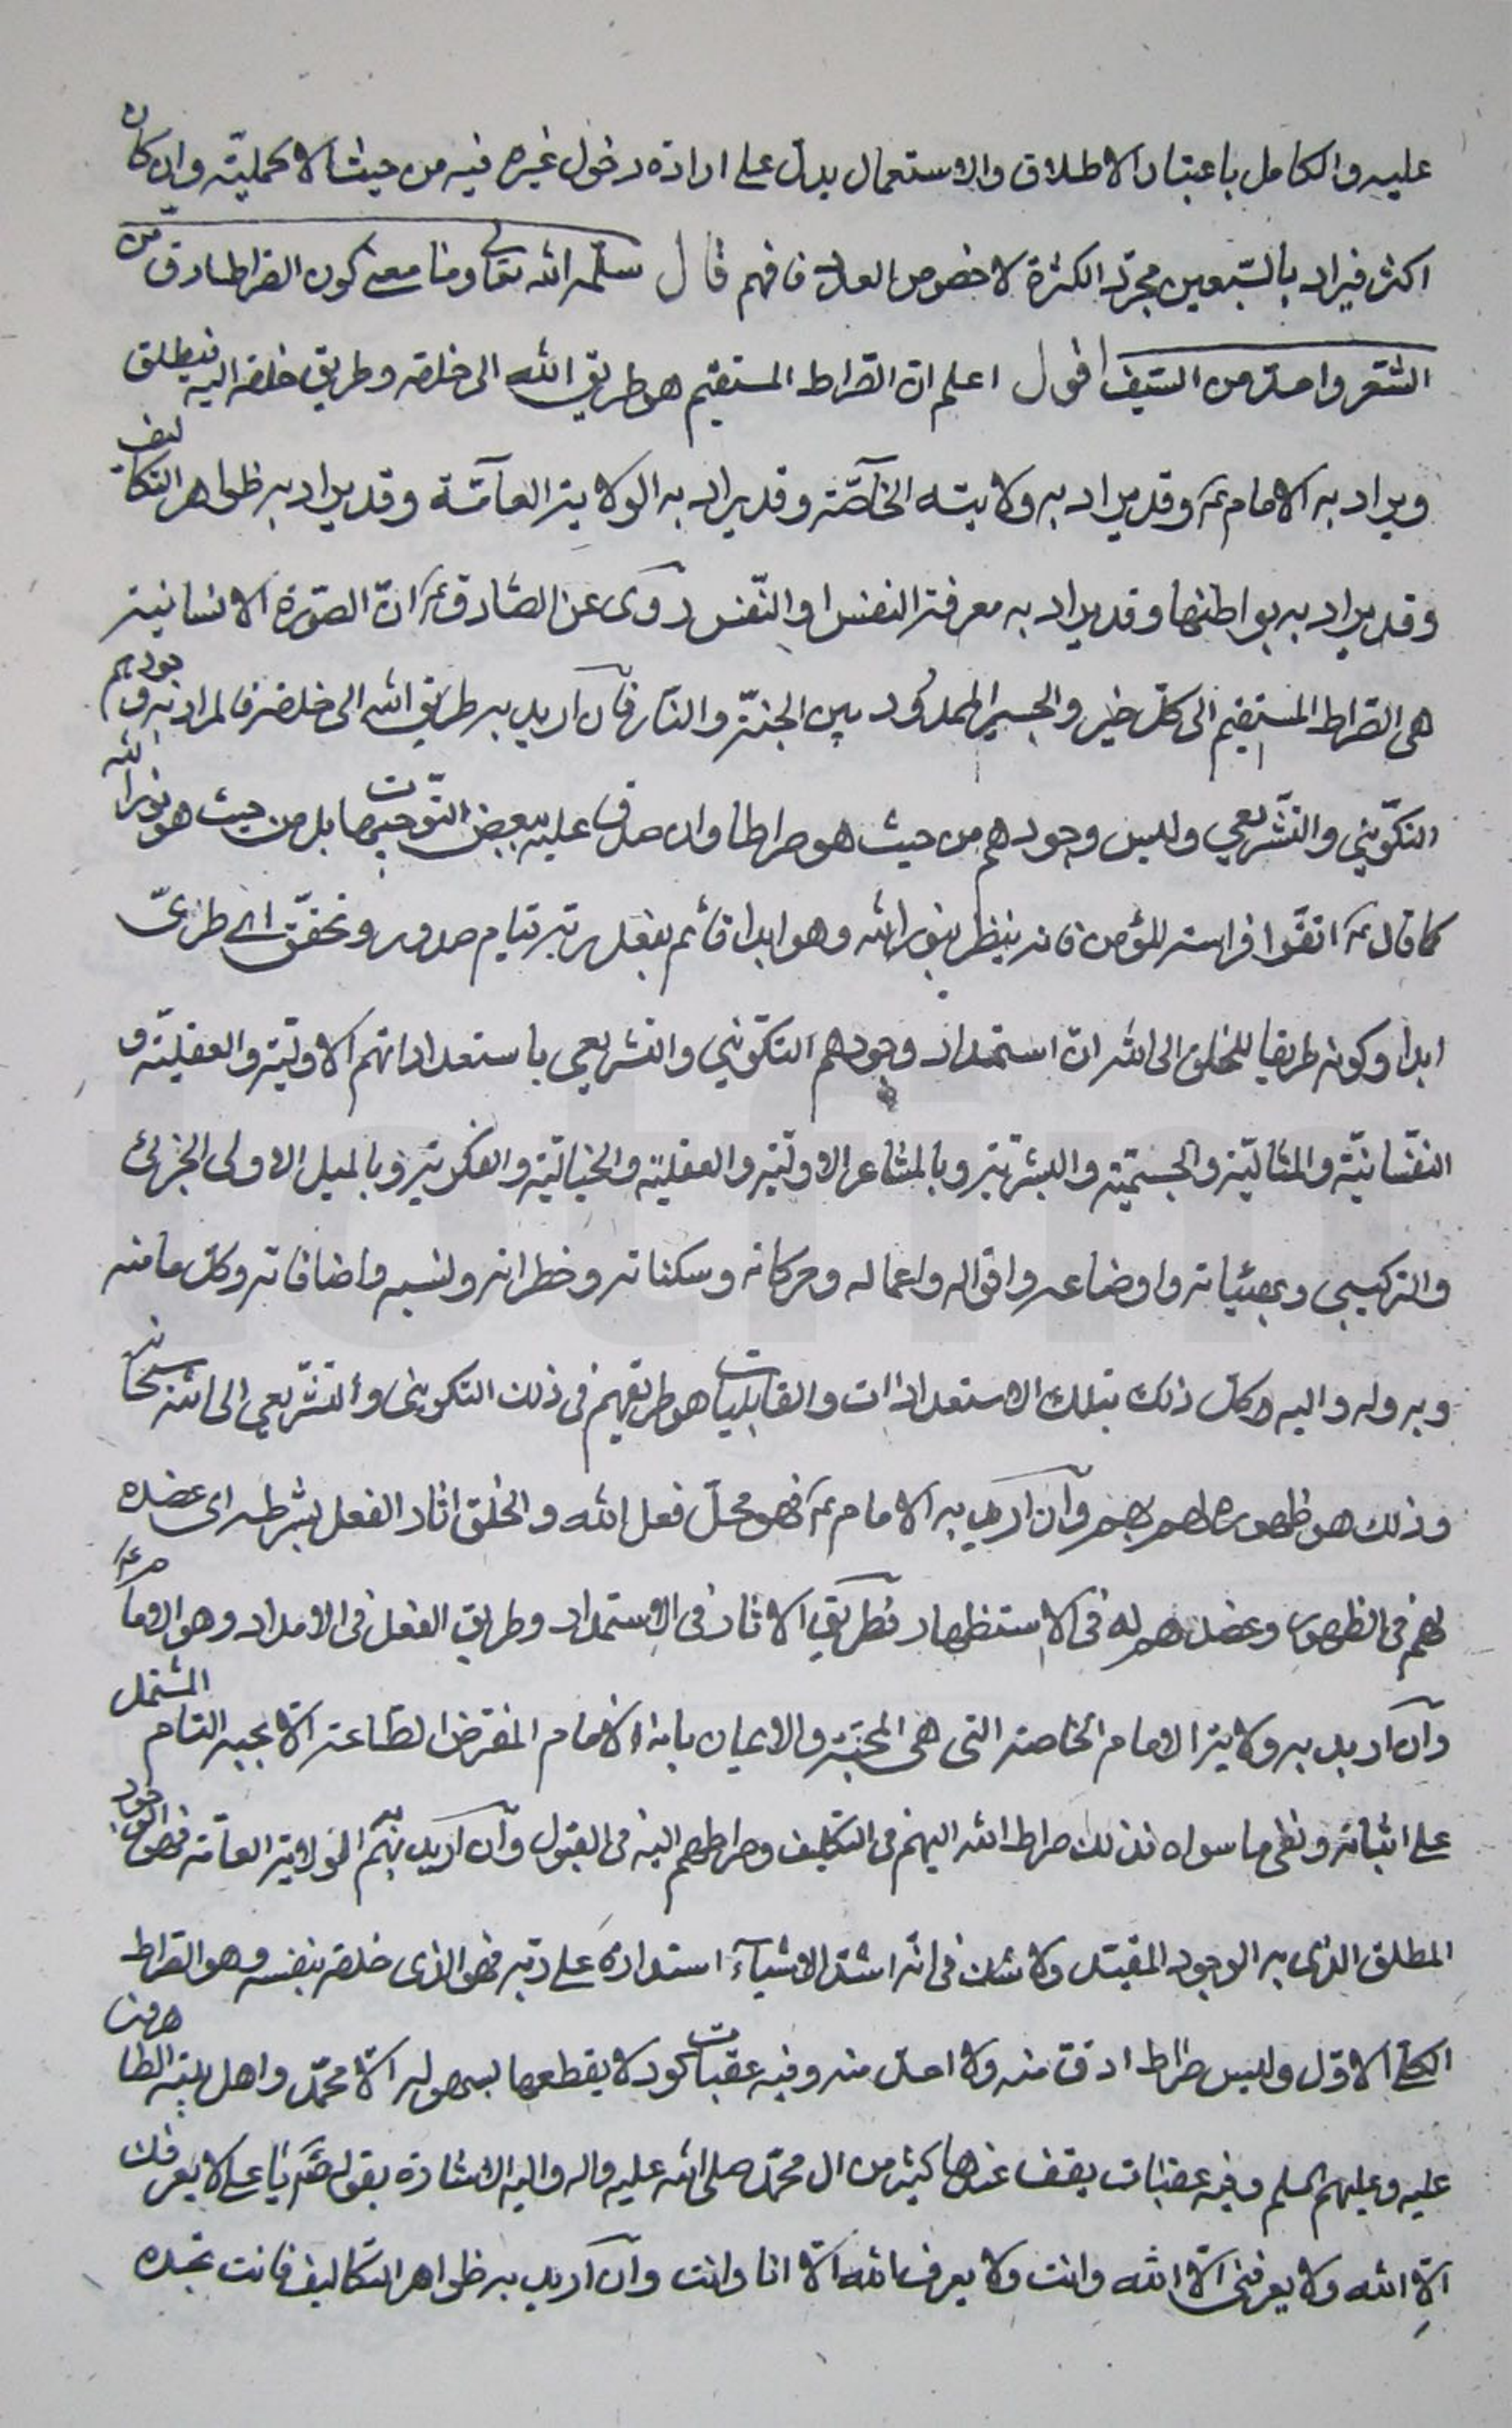 عليه والكامل باعتبار الاطلاق والاستعمال يدل على ارادة دخول غيره فيه من حيث الاكمليّة وان كان
اكثر فيراد بالسّبعين مجرّد الكثرة لا خصوص العدد فافهم قال سلّمه الله تعالى وما معنى كون الصّراط ادقّ من
الشّعر واحدّ من السّيف اقول اعلم انّ الصّراط المستقيم هو طريق الله الى خلقه وطريق خلقه اليه فيطلق
ويراد به الامام ع وقد يراد به ولايته الخاصّة وقد يراد به الولاية العامّة وقد يراد به ظواهر التكاليف
وقد يراد به بواطنها وقد يراد به معرفة النفس او النّفس روى عن الصّادق ع انّ الصّورة الانسانية
هى الصّراط المستقيم الى كلّ خير والجسر الممدود بين الجنّة والنّار فان اريد به طريق الله الى خلقه فالمراد به وجودهم
التكوّيني والتّشريعي وليس وجودهم من حيث هو صراطا وان صدق عليه ببعض التّوجيهات بل من حيث هو نور الله
كما قال ع اتقّوا فراسة المؤمن فانه ينظر بنور الله وهو ابدا قائم بفعل ربّه قيام صدور وتحقّق اى طرىّ
ابدا وكونه طريقا للخلق الى الله انّ استمداد وجودهم التكوّيني والتشريعي باستعداداتهم الاوليّة والعقليّة و
النفّسانيّة والمثاليّة والجسميّة والبشريّة وبالمشاعر الاوّليّة والعقليّة والخياليّة والفكريّة وبالميل الاولى الجزئى
والتركيبى وبهيئياته واوضاعه واقواله واعماله وحركاته وسكناته وخطراته ونسبه واضافاته وكلّ ما منه
وبه وله واليه وكلّ ذلك بتلك الاستعدادات والقابليات هو طريقهم في ذلك التكوينى والتّشريعي الى الله سبحانه
وذلك هو ظهوره لهم بهم وان اريد به الامام ع فهو محلّ فعل الله والخلق اثار الفعل بشرطه اى عضده
لهم فى الظهور وعضدهم له فى الاستظهار فطريق الاثار فى الاستمداد وطريق الفعل فى الامداد وهو الامام ع
وان اريد به ولاية الامام الخاصة التى هى المحبّة والايمان بانه الامام المفترض الطاعة الا بحبه التام المشتمل
على اثباته ونفى ما سواه فذلك صراط الله اليهم فى التكليف وصراطهم اليه فى القبول وان اريد به الولاية العامّة فهو الوجود
المطلق الذى به الوجود المقيّد ولا شك فى انّه اشدّ الاشياء استدارة على ربّه فهو الذى خلقه بنفسه وهو الصّراط
الكلّى الاوّل وليس صراط ادقّ منه ولا احدّ منه وفيه عقبات كؤد لا يقطعها بسهولة الّا محمّد واهل بيته الطاهرين
عليه وعليهم السلم وفيه عقبات يقف عندها كثير من ال محمّد صلى الله عليه واله واليه الاشارة بقوله ص يا على لا يعرفك
الّا الله ولا يعرفنى الّا الله وانت ولا يعرف الله الّا انا وانت وان اريد به ظواهر التكاليف فانت تجده